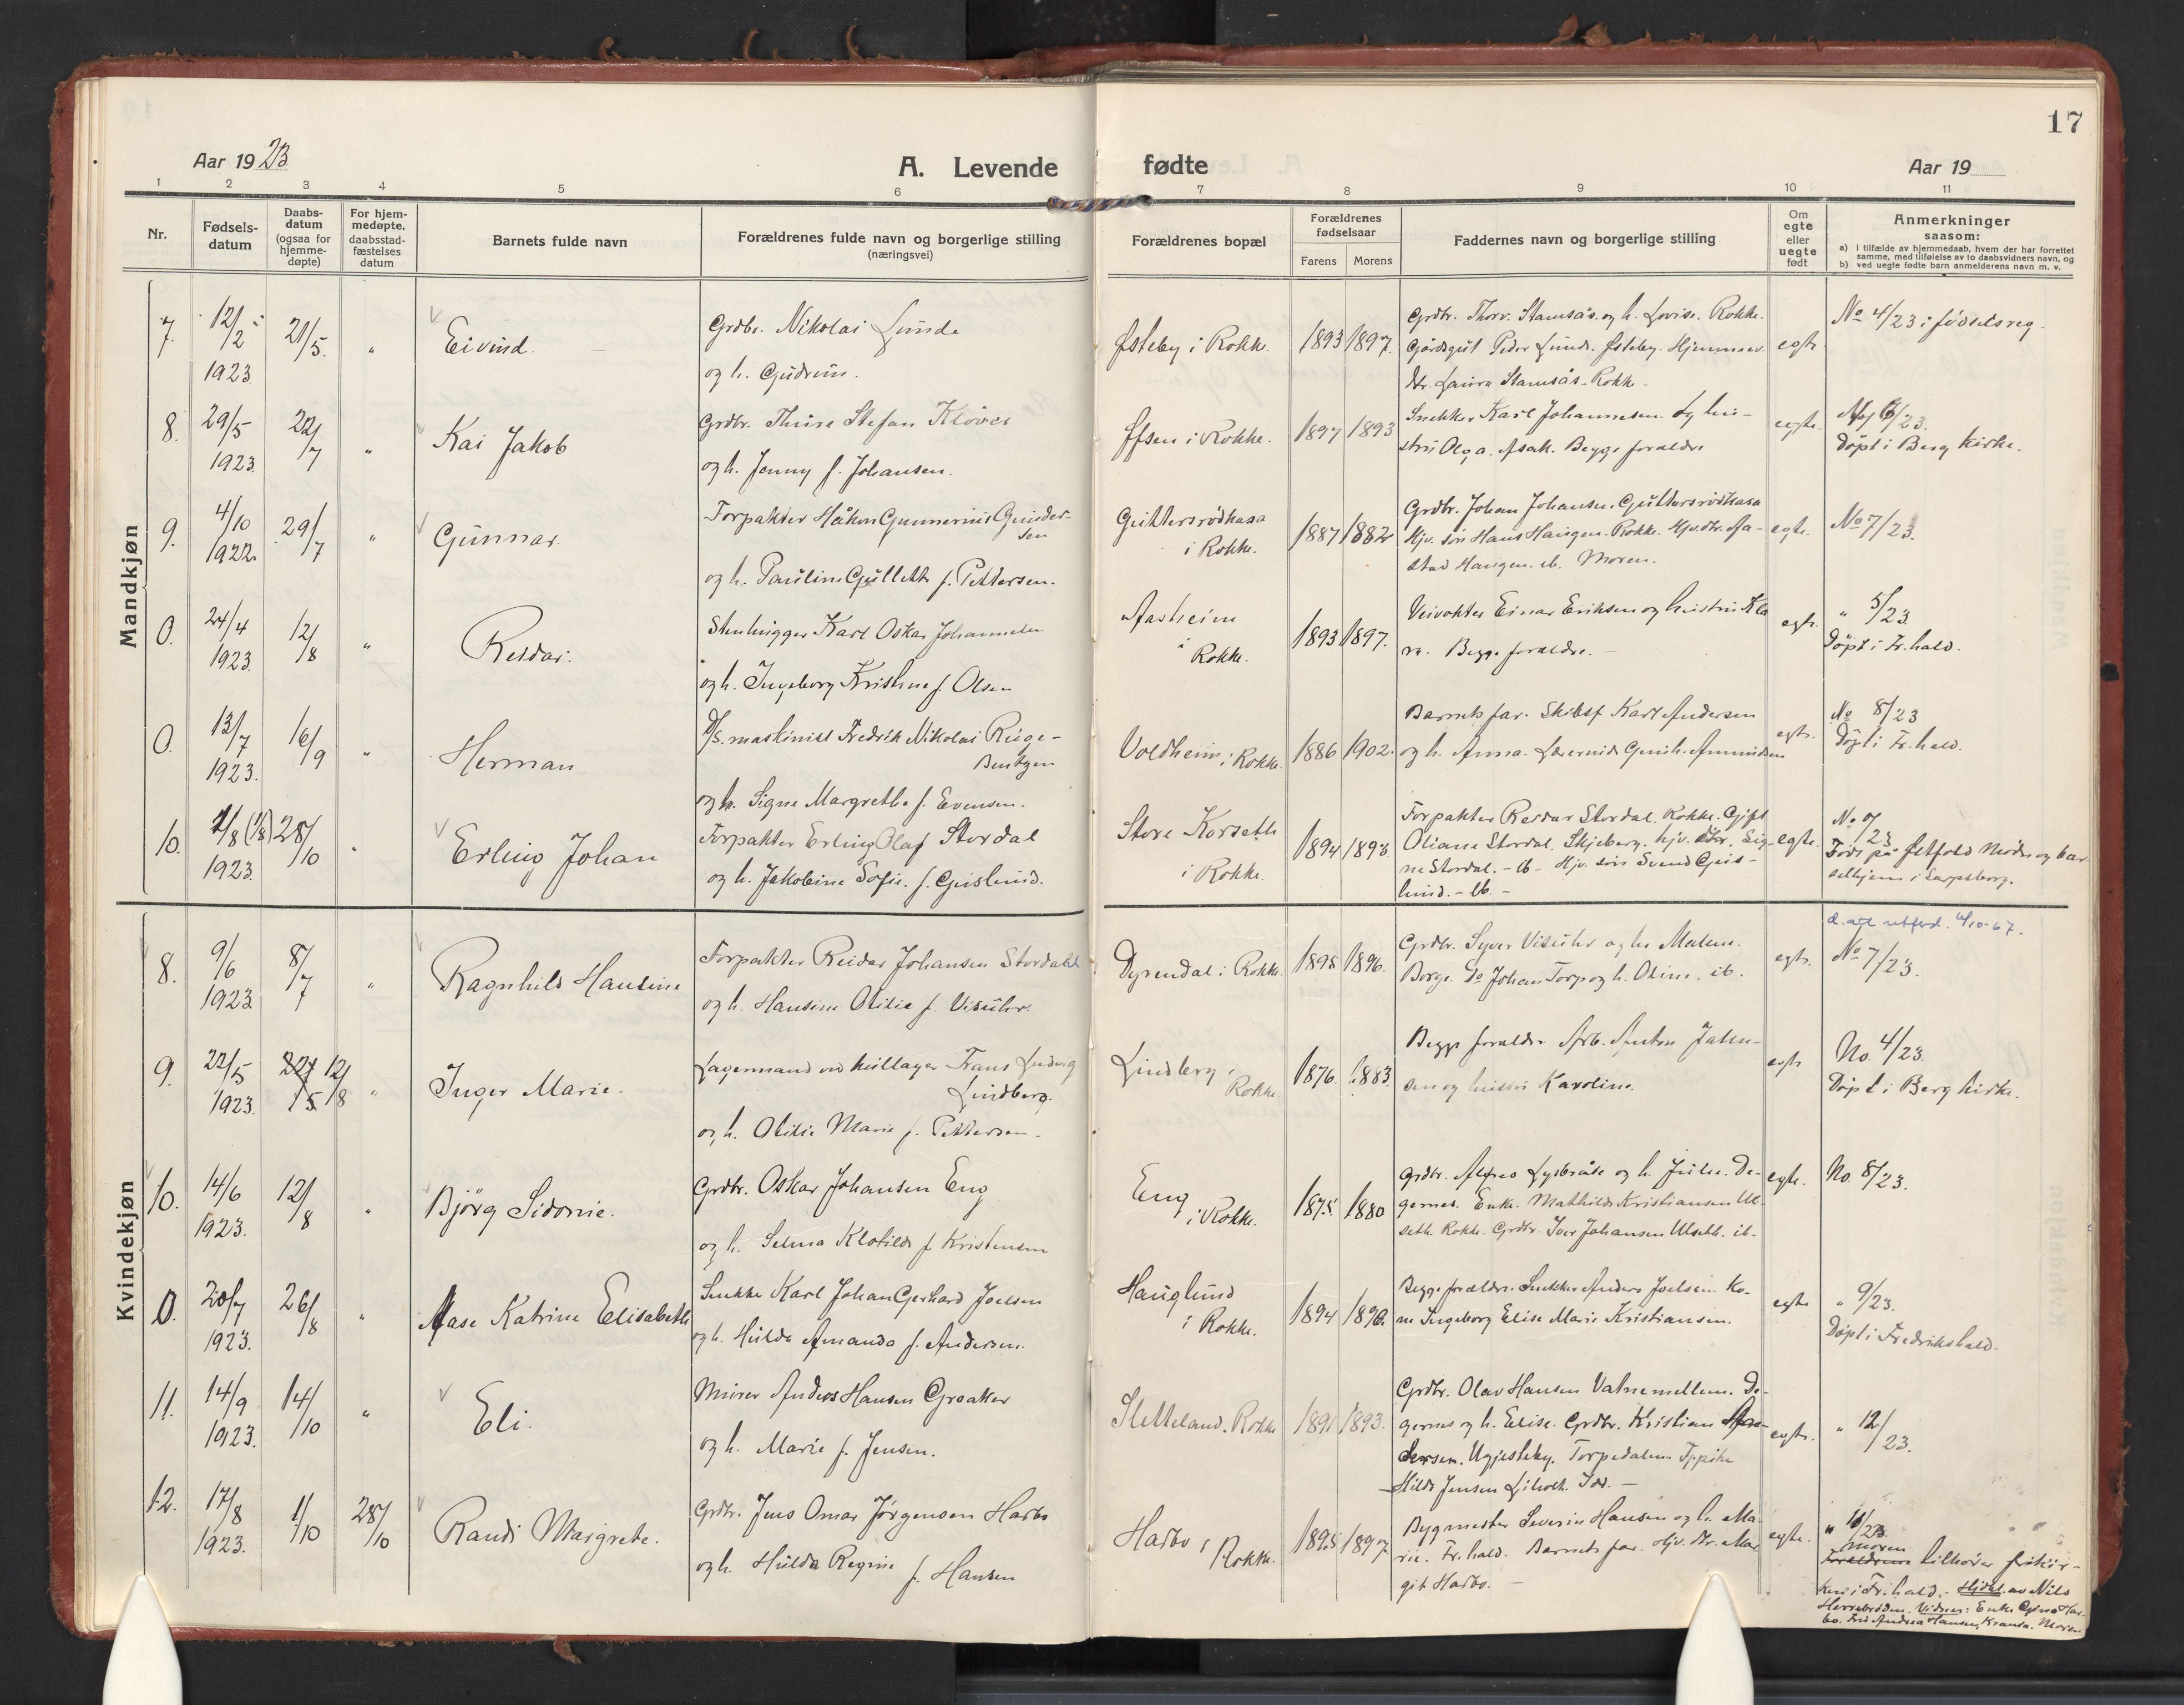 17
Aar 1923
A. Levende
fødte
Aar 19
1 2 3 4 5 6 7 8 9 10 11
Nr.
Fødsels-
datum
Daabs-
datum
(ogsaa for
hjemme-
døpte)
For hjem-
medøpte,
daabsstad-
fæstelses
datum
Barnets fulde navn
Forældrenes fulde navn og borgerlige stilling
(næringsvei)
Forældrenes bopæl
Forældrenes
fødselsaar
Farens Morens
Faddernes navn og borgerlige stilling
Om
egte
eller
uegte
født
Anmerkninger
saasom:
a) i tilfælde av hjemmedaab, hvem der har forrettet
samme, med tilføielse av to daabsvidners navn, og
b) ved uegte fødte barn anmelderens navn m. v.
Mandkjøn
7. 12/2 1923 21/5. "
Eivind.
Grdbr. Nikolai Lunde
og h. Gudrun.
Østeby i Rokke. 1893 1897.
Grdbr. Thorv. Stamsås. og h. Lovise. Rokke.
Gårdsgut Peder Lund. Østeby. Hjemmev.
dtr. Laura Stamsås. Rokke.
egte
No 4/23 i fødselsreg.
8. 29/5 1923. 22/7 "
Kai Jakob
Grdbr. Thure Stefan Kløver
og h. Jenny f. Johansen.
i Rokke. 1897 1893
Snekker Karl Johannesen. og hu-
stru Olga. Asak. Begge forældre
egte.
6/23.
Døpt i Berg kirke.
9. 4/10 1922. 29/7 "
Gunnar.
Forpakter Håkon Gunnerius Gunder-
sen
og h. Pauline Gullette f. Pettersen.
Guttersrødkasa
i Rokke. 1887 1882
Grdbr. Johan Johansen. Guttersrødkasa
Hjv. søn Hans Haugen. Rokke. Hjv. dtr. Aa-
stad Haugen. ib. Moren.
egte.
No 7/23.
0. 24/4 1923. 12/8 "
Reidar.
Stenhugger Karl Oskar Johannesen
og h. Ingeborg Kristine f. Olsen
Aasheim
i Rokke. 1893 1897.
Veivokter Einar Eriksen og hustru Kla
ra. Begge forældre.
egte.
" 5/23.
Døpt i Fr.hald.
0. 13/7 1923. 16/9 "
Herman
D/S. maskinist Fredrik Nikolai Rüge-
Bentzen
og h. Signe Margrethe f. Evensen.
Voldheim i Rokke. 1886 1902.
Barnets far. Skibsf Karl Andersen
og h. Anna. Gunh. Amundsen
egte.
No 8/23
Døpt i Fr.hald.
10. 1/8 (1/8) 1923. 28/10 "
Erling Johan
Forpakter Erling Olaf Stordal
og h. Jakobine Sofie. f. Geislund.
Store Korseth
i Rokke. 1894 1893.
Forpakter Reidar Stordal. Rokke. Gift
Oliane Stordal. Skjeberg. hjv. dtr. Sig-
ne Stordal. - ib - Hjv. søn Svend Geis-
lund. - ib. -
egte.
No 9/23
Født på Østfold Mødre og bar
selhjem i Sarpsborg.
Kvindekjøn
8. 9/6 1923 8/7 "
Ragnhild Hansine
Forpakter Reidar Johansen Stordahl
og h. Hansine Otilie f. Visuhr.
Dyrendal i Rokke. 1898 1896.
Grdbr. Syver Visuhr og h. Malene.
Borge. Do Johan Torp og h. Oline. ib.
egte.
d. att utferd. 4/10-67.
No 7/23.
9. 22/5 1923. 12/8 "
Inger Marie.
Lagermand ved kullager Frans Ludvig
Lindberg.
og h. Otilie Marie f. Pettersen.
Lindberg i
Rokke. 1876. 1883.
Begge forældre Arb. Anton
sen og hustru Karoline.
egte
No. 4/23.
Døpt i Berg kirke.
10. 14/6 1923. 12/8 "
Bjørg Sidonie.
Grdbr. Oskar Johansen Eng
og h. Selma Klotilde f. Kristensen
Eng
i Rokke. 1875. 1880
Grdbr. Alfred Lysbråte og h. Julie. De-
gernes. Enke. Mathilde Kristiansen Ul-
seth. Rokke. Grdbr. Iver Johansen Ulseth. ib.
egte.
No. 8/23.
0. 20/7 1923. 26/8 "
Aase Katrine Elisabeth
Snekker Karl Johan Gerhard Joelsen
og h. Hulda Amanda f. Andersen.
Hauglund
i Rokke. 1894 1896.
Begge forældre. Snekker Anders Joelsen. Ko-
ne Ingeborg Elise Marie Kristiansen.
egte
" 9/23.
Døpt i Fredrikshald.
11. 14/9 1923. 14/10 "
Eli.
Murer Anders Hansen Groaker
og h. Marie f. Jensen.
Sletteland. Rokke 1891 1893.
Grdbr. Olav Hansen Vatnemellem. De-
gernes og h. Elise. Grdbr. Kristian An-
dersen. Torpedalen. Tjpike
Hilda Jensen Idd. -
egte.
" 12/23.
12. 17/8 1923. 1/10 28/10
Randi Margrete.
Grdbr. Jens Omar Jørgensen Harbo
og h. Hulda Regine f. Hansen
Harbo i
Rokke. 1895 1897.
Bygmester Severin Hansen og h. Ma-
rie. Fr.hald. Barnets far. Hjv. dtr. Mar
git Harbo. -
egte.
" 11/23.
moren
Forældrene tilhører frikir-
ken i Fr.hald. - Hjdøbt. av Nils
Herrebrøden. Vidner: Enke Gina Har-
bo. Frk Andrea Hansen, Moren